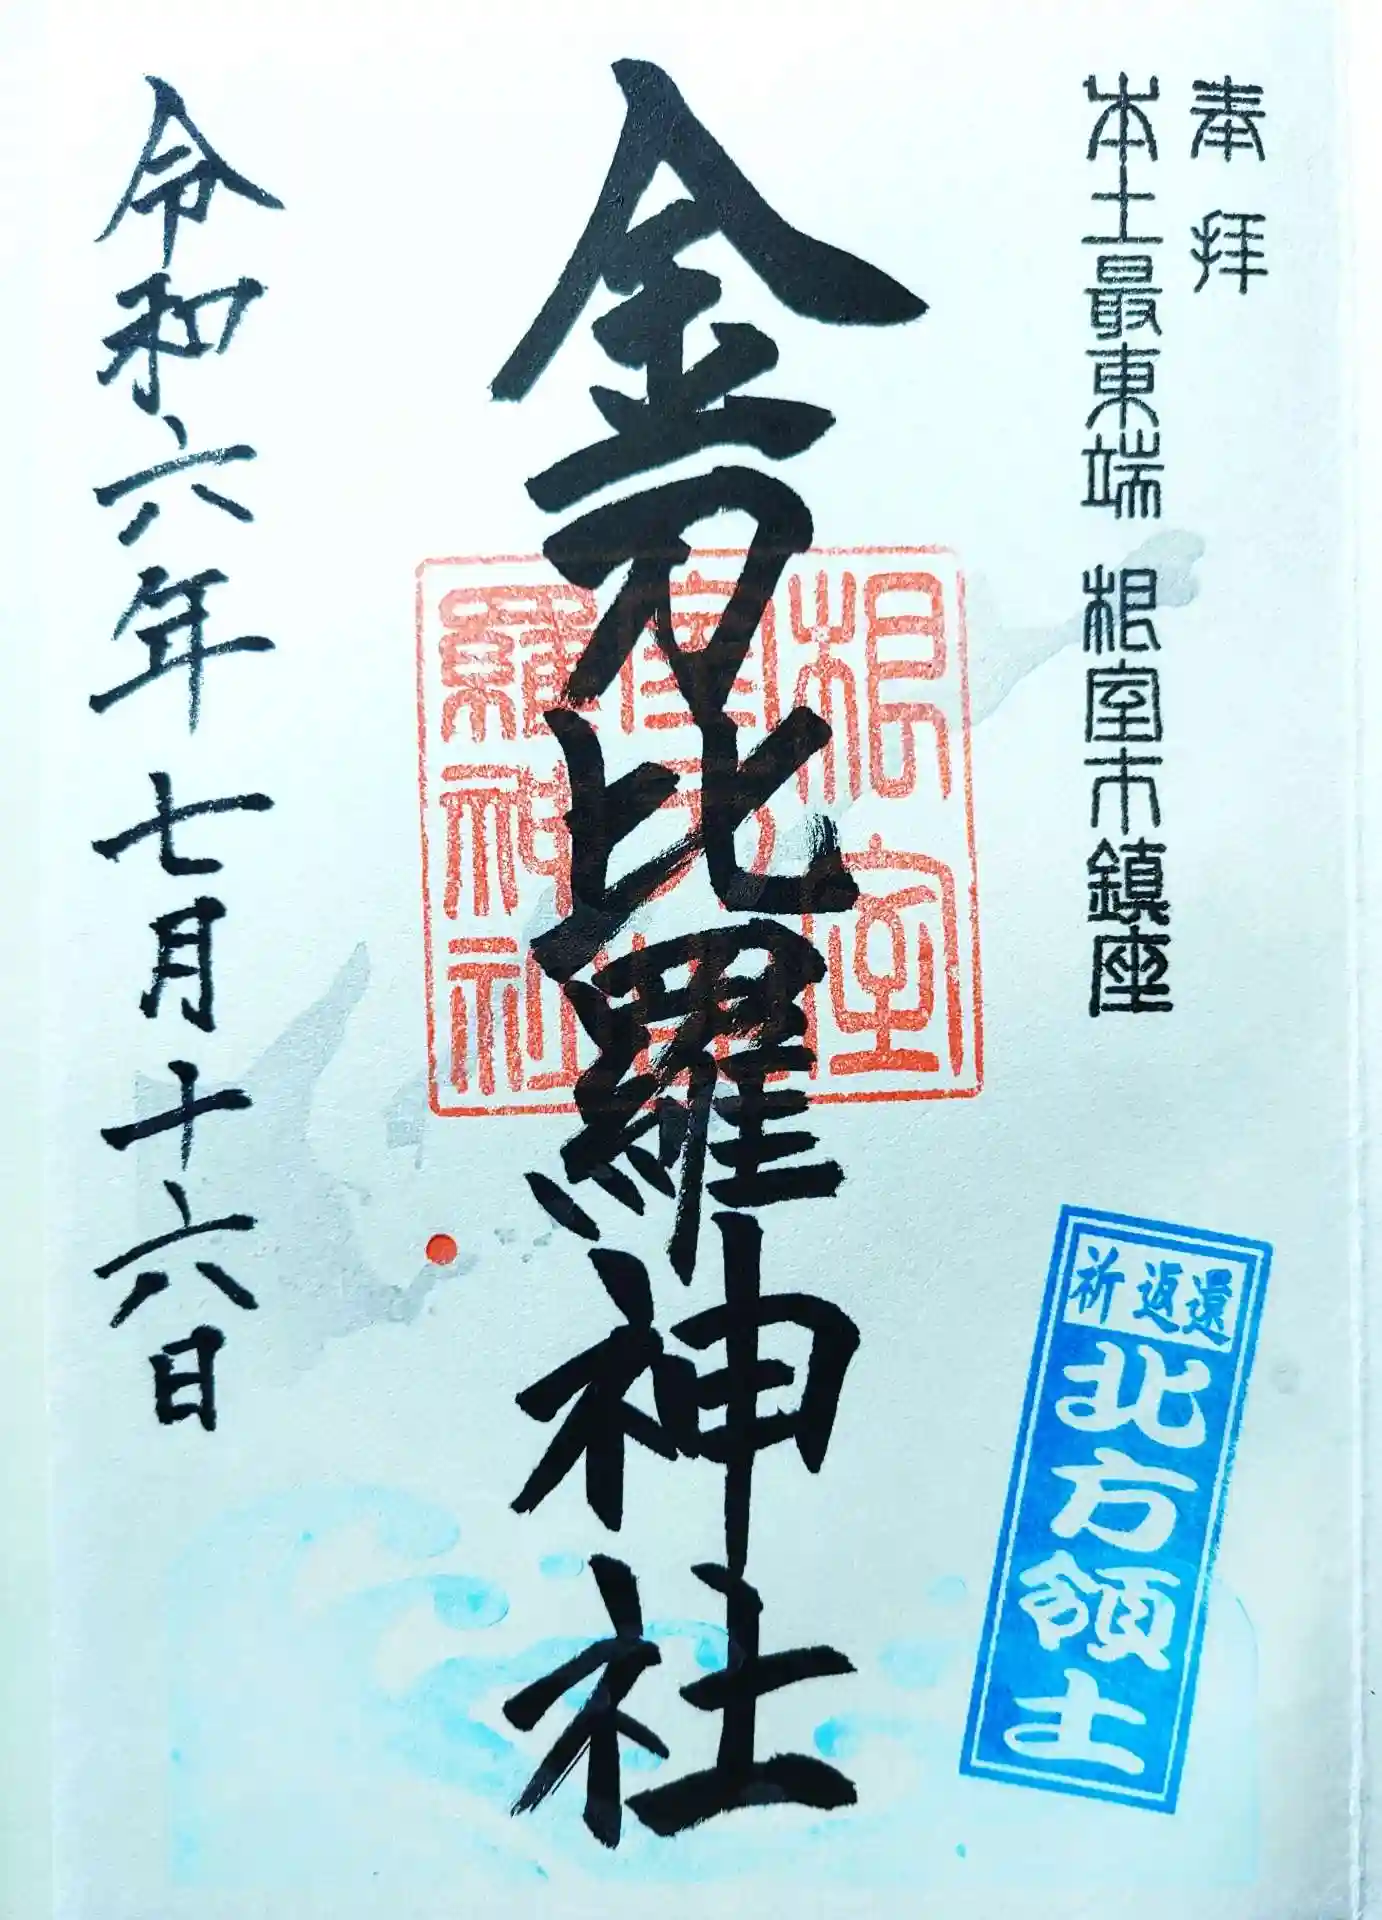 奉拝
本土最東端 根室市鎮座
根室
羅神社
金刀比羅神社
令和六年七月十六日
祈 返還
北方領土